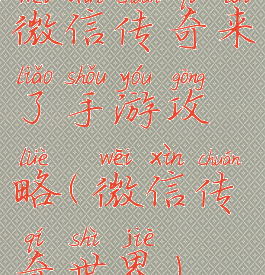 微信传奇来
liǎo shǒu yóu gōng
了手游攻
lüè wēi xìn chuán
略(微信传
qí shì jiè
奇世界)